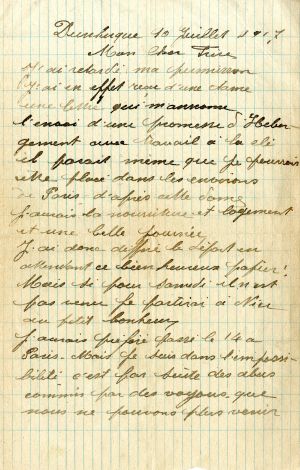 Dunkerque 12 Juillet 1917
Mon Cher Frère
J'ai retardé ma permission
J'ai en effet reçu d'une dame
une lettre qui m'annonce
l'envoi d'une promesse d'Héber
gement avec travail à la clé
il parait même que je pourrais
être placé dans les environs
de Paris. d'après cette dame
j'aurais la nourriture et logement
et une belle journée
J'ai donc différé le départ en
attendant ce bienheureux papier!
Mais si pour samedi il n'est
pas venu je partirai à Nice
au petit bonheur
J'aurais préféré passé le 14 a
Paris. Mais je suis dans l'impossi
bilité c'est par suite des abus
commis par des voyous que
nous ne pouvons plus venir